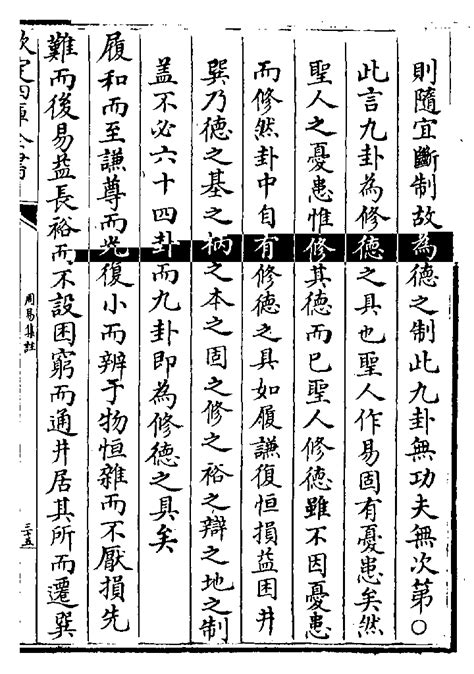 則隨宜斷制故為德之制此九卦無功夫無次第○
此言九卦為修德之具也聖人作易固有憂患矣然
聖人之憂患惟修其德而已聖人修德雖不因憂患
而修然卦中自有修德之具如履謙復恒損益困井
巽乃德之基之柄之本之固之修之裕之辯之地之制
蓋不必六十四卦而九卦即為修德之具矣
履和而至謙尊而光復小而辨于物恒雜而不厭損先
難而後易益長裕而不設困窮而通井居其所而遷巽
欽定四庫全書
周易集註
三十五